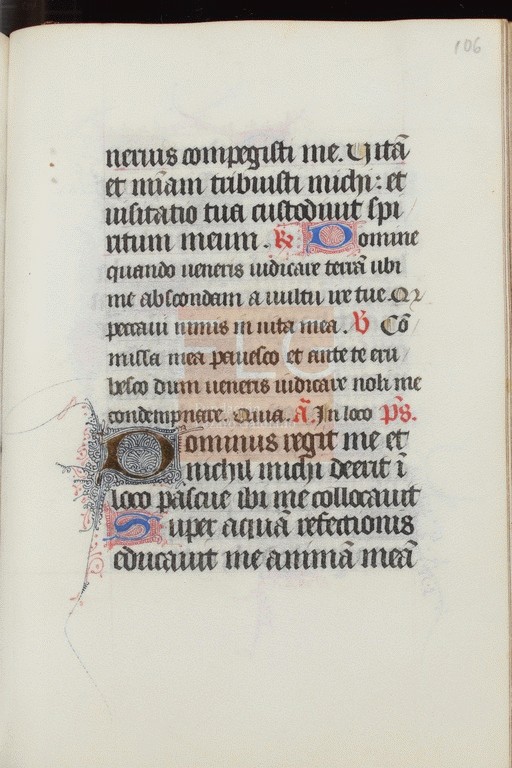 106
neruis compegisti me. Uitã
et mi͠am tribuisti michi: et
uisitatio tua custodiuit spi
ritum meum. R̸ Domine
quando ueneris iudicare terrã ubi
me abscondam a uultu ire tue. Qr
peccaui nimis in uita mea. V̸ Cõ
missa mea pauesco et ante te eru
besco dum ueneris iudicare noli me
condempnare. Quia. ã. In loco p̃s.
Dominus regit me et
nichil michi deerit ĩ
loco pascue ibi me collocauit
Super aquã refectionis
educauit me animã meã